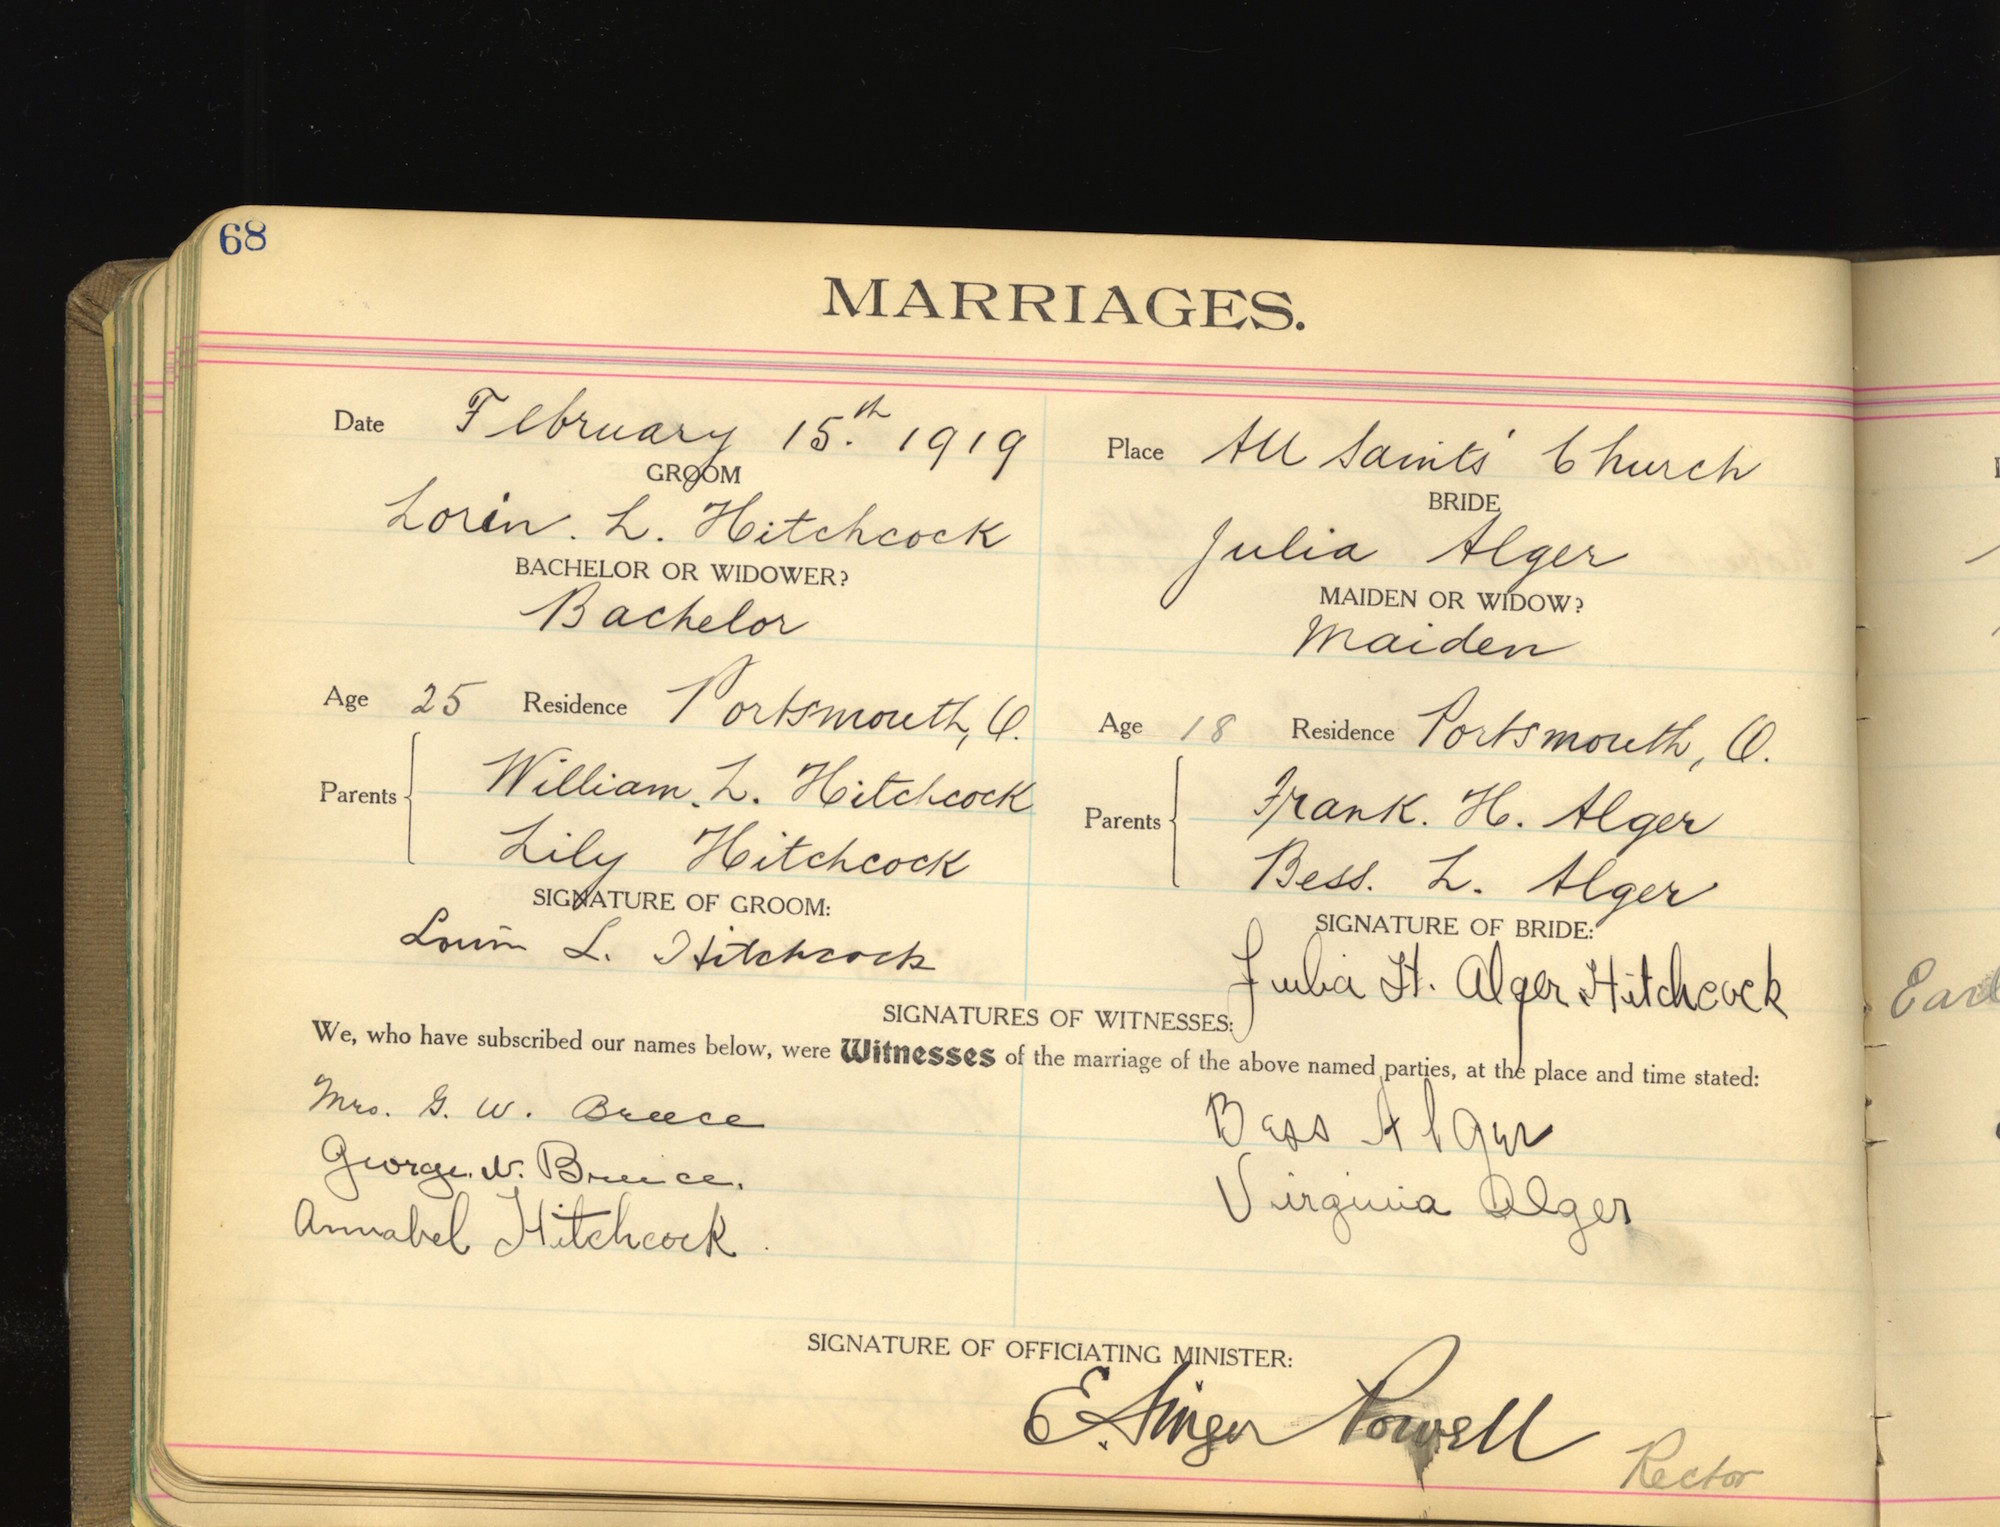 68
MARRIAGES.
Date February 15.th 1919
Place All Saints' Church
GROOM
BRIDE
Lorin. L. Hitchcock
Julia Alger
BACHELOR OR WIDOWER?
MAIDEN OR WIDOW?
Bachelor
Maiden
Age 25 Residence Portsmouth, O.
Age 18 Residence Portsmouth, O.
Parents William. L. Hitchcock
Lily Hitchcock
Parents Frank. H. Alger
Bess. L. Alger
SIGNATURE OF GROOM:
SIGNATURE OF BRIDE:
Lorin L. Hitchcock
Julia H. Alger Hitchcock
SIGNATURES OF WITNESSES:
We, who have subscribed our names below, were Witnesses of the marriage of the above named parties, at the place and time stated:
Mrs. G. W. Breece
Bess Alger
George. W. Breece.
Virginia Alger
Annabel Hitchcock.
SIGNATURE OF OFFICIATING MINISTER:
E. Singer Powell
Rector